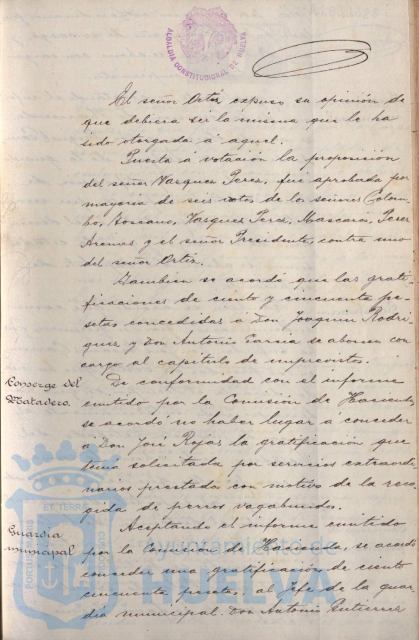 ALCALDIA CONSTITUCIONAL DE HUELVA
El señor Ortiz expuso su opinión de
que debiera ser la misma que le ha
sido otorgada á aquel.
Puesta a votación la proposición
del señor Vasquez Perez, fué aprobada por
mayoría de seis votos, de los señores Colom-
bo, Toscano, Vasquez Perez, Mascarós, Perez
Arenas y el señor Presidente, contra uno
del señor Ortiz.
Tambien se acordó que las grati-
ficaciones de ciento y cincuenta pe-
setas concedidas á Don Joaquin Rodri
guez y Don Antonio Garcia se abonen con
cargo al capítulo de imprevistos.
Conserge del
Matadero.
De conformidad con el informe
emitido por la Comision de Hacienda,
se acordó no haber lugar á conceder
a Don José Rojas la gratificación que
tenia solicitada por servicios extraordi
narios prestados con motivo de la reco
gida de perros vagabundos.
Guardia
municipal
Aceptando el informe emitido
por la Comision de Hacienda, se acordó
conceder una gratificación de ciento
cincuenta pesetas, al Jefe de la guar
dia municipal Don Antonio Gutierrez
ET TERRÆ
PORTUS
CUSTODIA
Ayuntamiento de
HUELVA